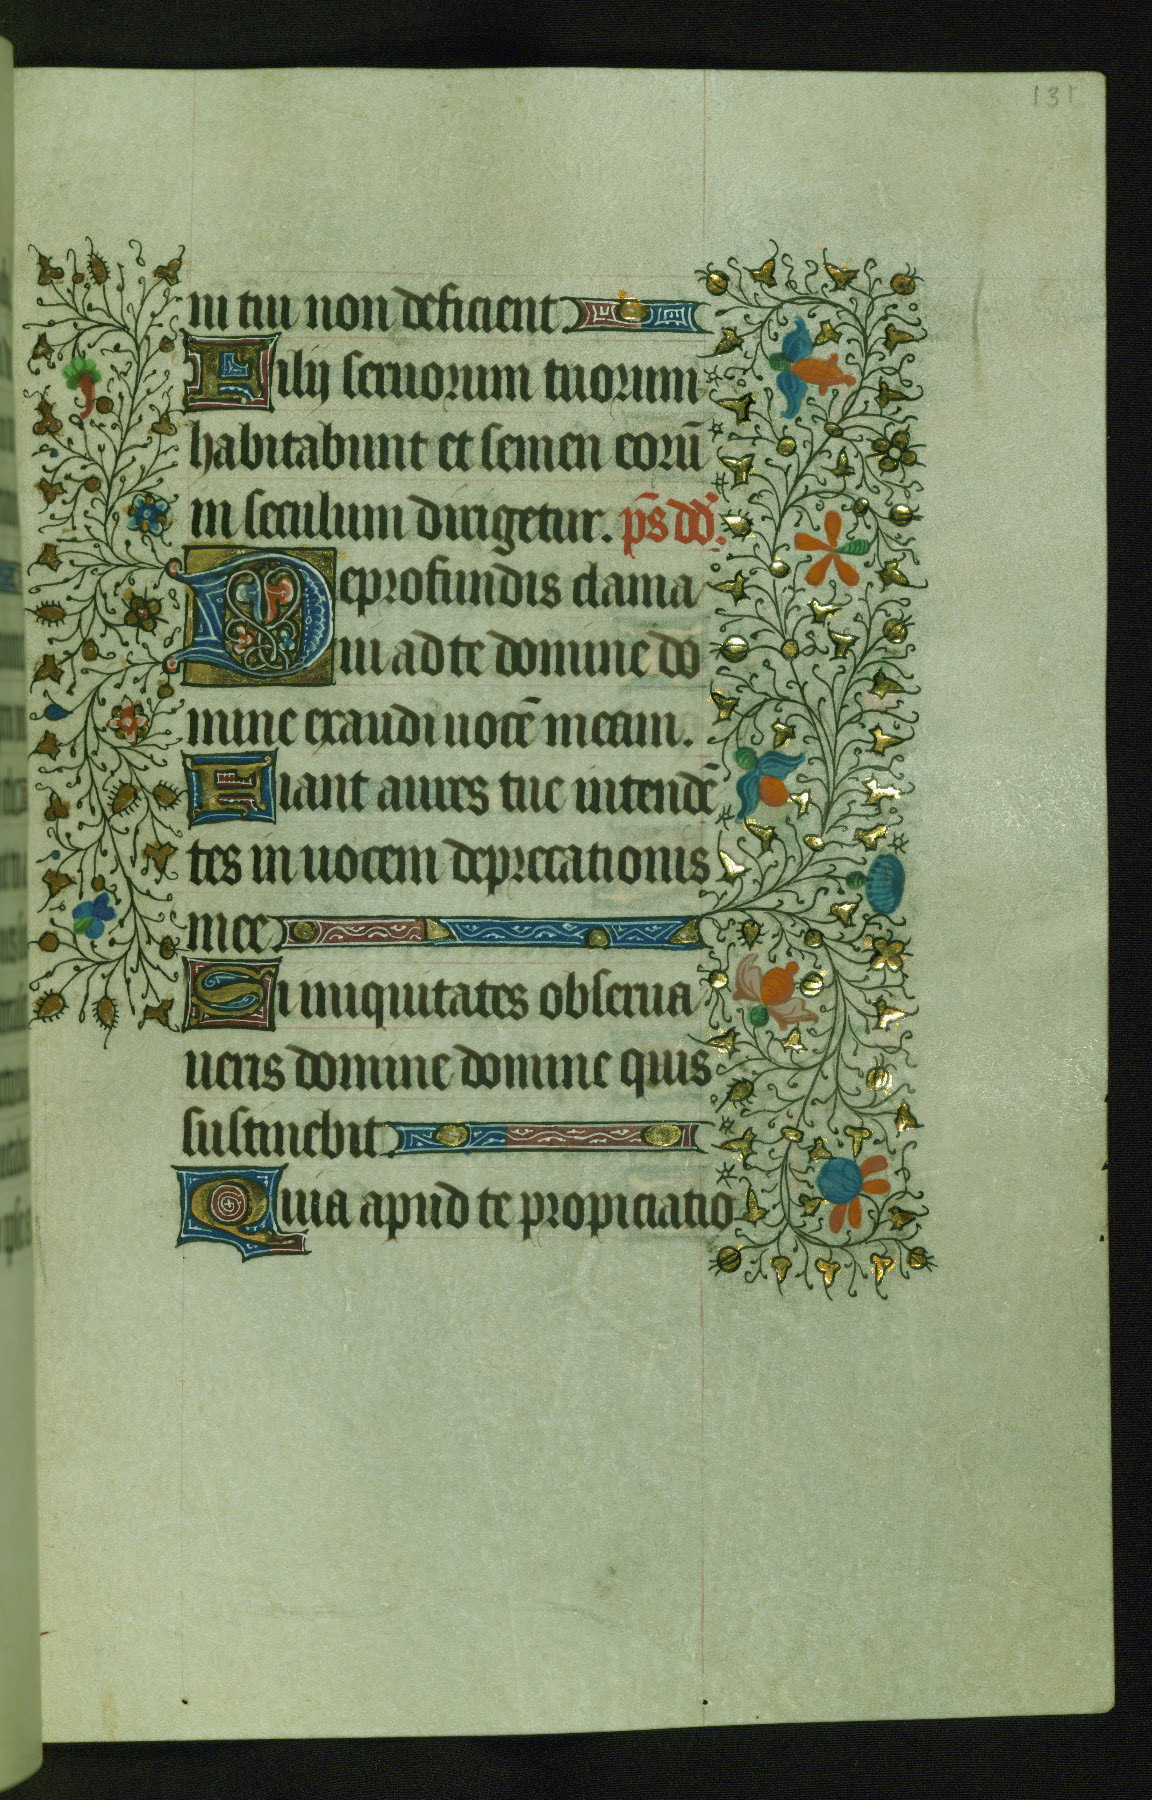 131
ni tui non deficient
Filij seruorum tuorum
habitabunt et semen eorū
in seculum dirigetur. p̄s dd̄.
Deprofundis clama
ui ad te domine do
mine exaudi uocē meam.
Fiant aures tue intendē
tes in uocem deprecationis
mee
Si iniquitates obserua
ueris domine domine quis
sustinebit
Quia apud te propiciatio